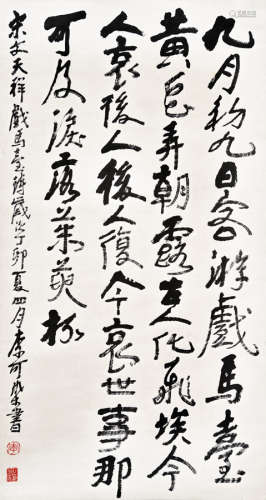 九月初九日客游戲馬臺
黄花弄朝露古人化飛埃今
人哀後人後人復今哀世事那
可及淚落茱萸杯
宋文天祥戲馬臺詩歲次丁卯夏四月 書